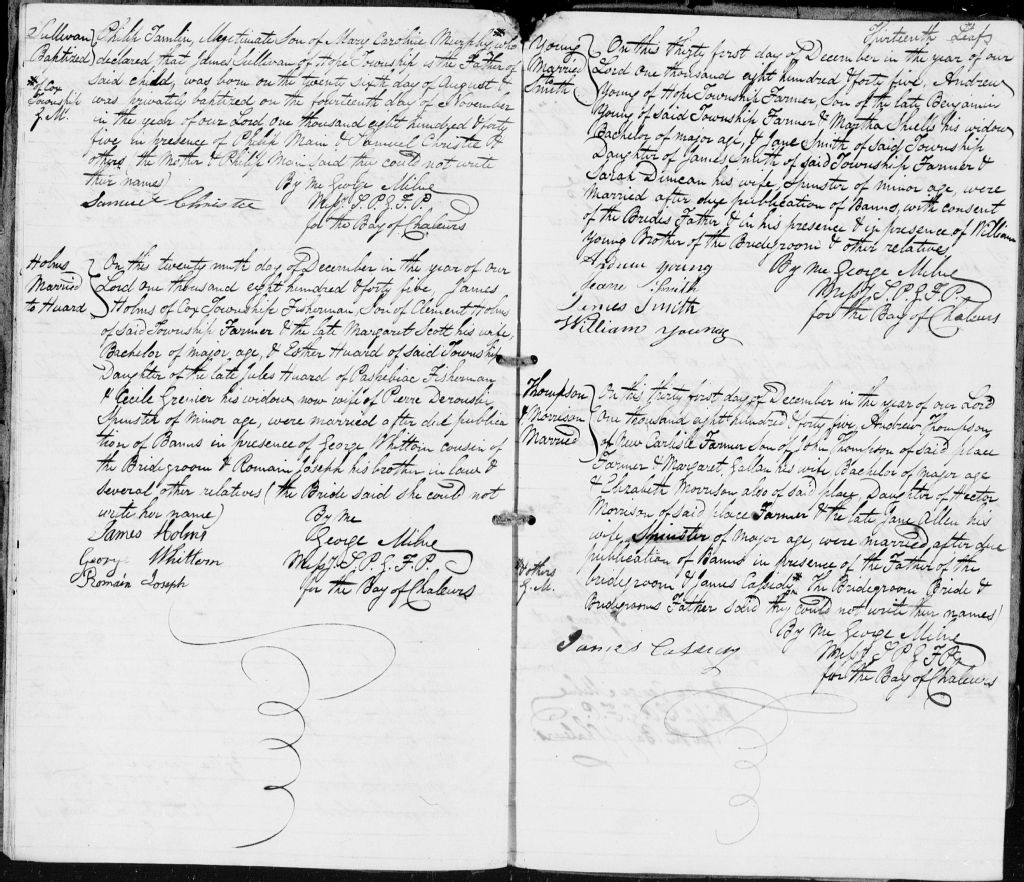 Sullivan
Baptized
* of Cox
Township
G. M.
Philip Tamlin, Illegitimate Son of Mary Caroline Murphy * who
declared that James Sullivan of Hope Township is the Father of
said child, was born on the twenty sixth day of August &
was privately baptized on the fourteenth day of November
in the year of our Lord one thousand eight hundred & forty
five in presence of Philip Main & Samuel Christie &
others (the Mother & Philip Main said they could not write
their names)
By me George Milne
Samuel Christie
Missy. S. P. G. F. P.
for the Bay of Chaleurs
Holms
Married
to Huard
On this twenty ninth day of December in the year of our
Lord one thousand eight hundred & forty five, James
Holms of Cox Township Fisherman, Son of Clement Holms
of said Township Farmer & the late Margaret Scott his wife,
Bachelor of major age, & Esther Huard of said Township
Daughter of the late Jules Huard of Paspebiac Fisherman
& Cecile Grenier his widow now wife of Pierre
Spinster of Minor age, were married after due publica
tion of Banns in presence of George Whittom cousin of
the Bridegroom & Romain Joseph his brother in law &
several other relatives (the Bride said she could not
write her name)
By me
James Holms
George Milne
George Whittom
Missy. S. P. G. F. P.
Romain Joseph
for the Bay of Chaleurs
Thirteenth Leaf
Young
Married
Smith
On this thirty first day of December in the year of our
Lord one thousand eight hundred & forty five, Andrew
Young of Hope Township Farmer Son of the late Benjamin
Young of said Township Farmer & Martha Shiells his widow
Bachelor of major age, & Jane Smith of said Township
Daughter of James Smith of said Township Farmer &
Sarah Duncan his wife, Spinster of minor age, were
Married after due publication of Banns, with consent
of the Brides Father & in his presence & in presence of William
Young Brother of the Bridegroom & other relatives,
Andrew Young
By Me George Milne
Jeane Smith
Missy. S. P. G. F. P.
James Smith
for the Bay of Chaleurs
William Young
Thompson
& Morrison
Married
On this thirty first day of December in the year of our Lord
One thousand eight hundred & forty five, Andrew Thompson,
of New Carlisle Farmer Son of John Thompson of said place
Farmer & Margaret Gallan his wife Bachelor of Major age
& Elizabeth Morrison, also of said place, Daughter of Hector
Morrison of said place Farmer & the late Jane Allen his
wife, Spinster of Major age, were married after due
publication of Banns in presence of the Father of the
bridegroom & James Cassidy * (The Bridegroom Bride &
Bridegrooms Father said they could not write their names)
* & others
G. M.
By Me George Milne
James Cassidy
Missy. S. P. G. F. P.
for the Bay of Chaleurs